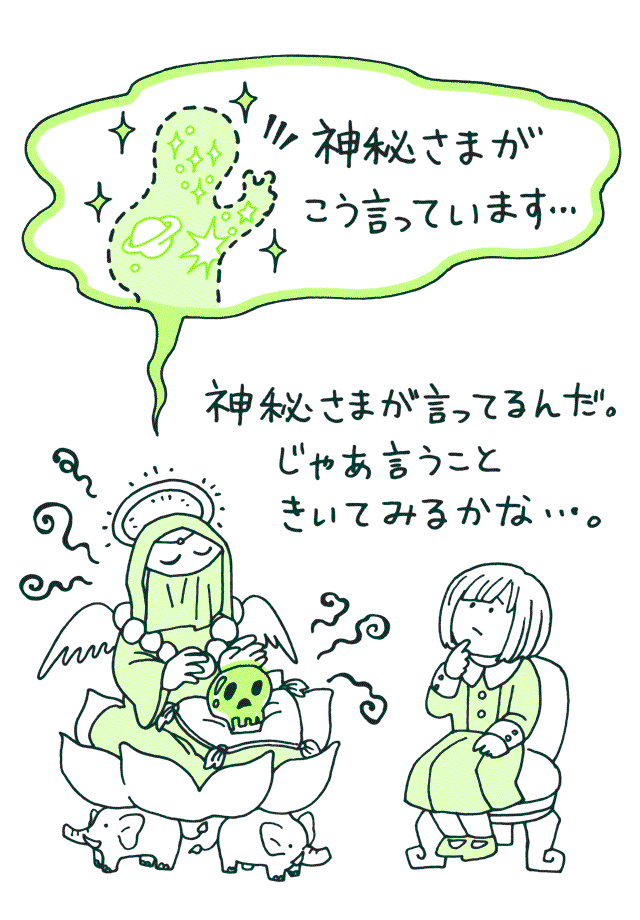 神秘さまが
こう言っています…
神秘さまが言ってるんだ。
じゃあ言うこと
きいてみるかな…。